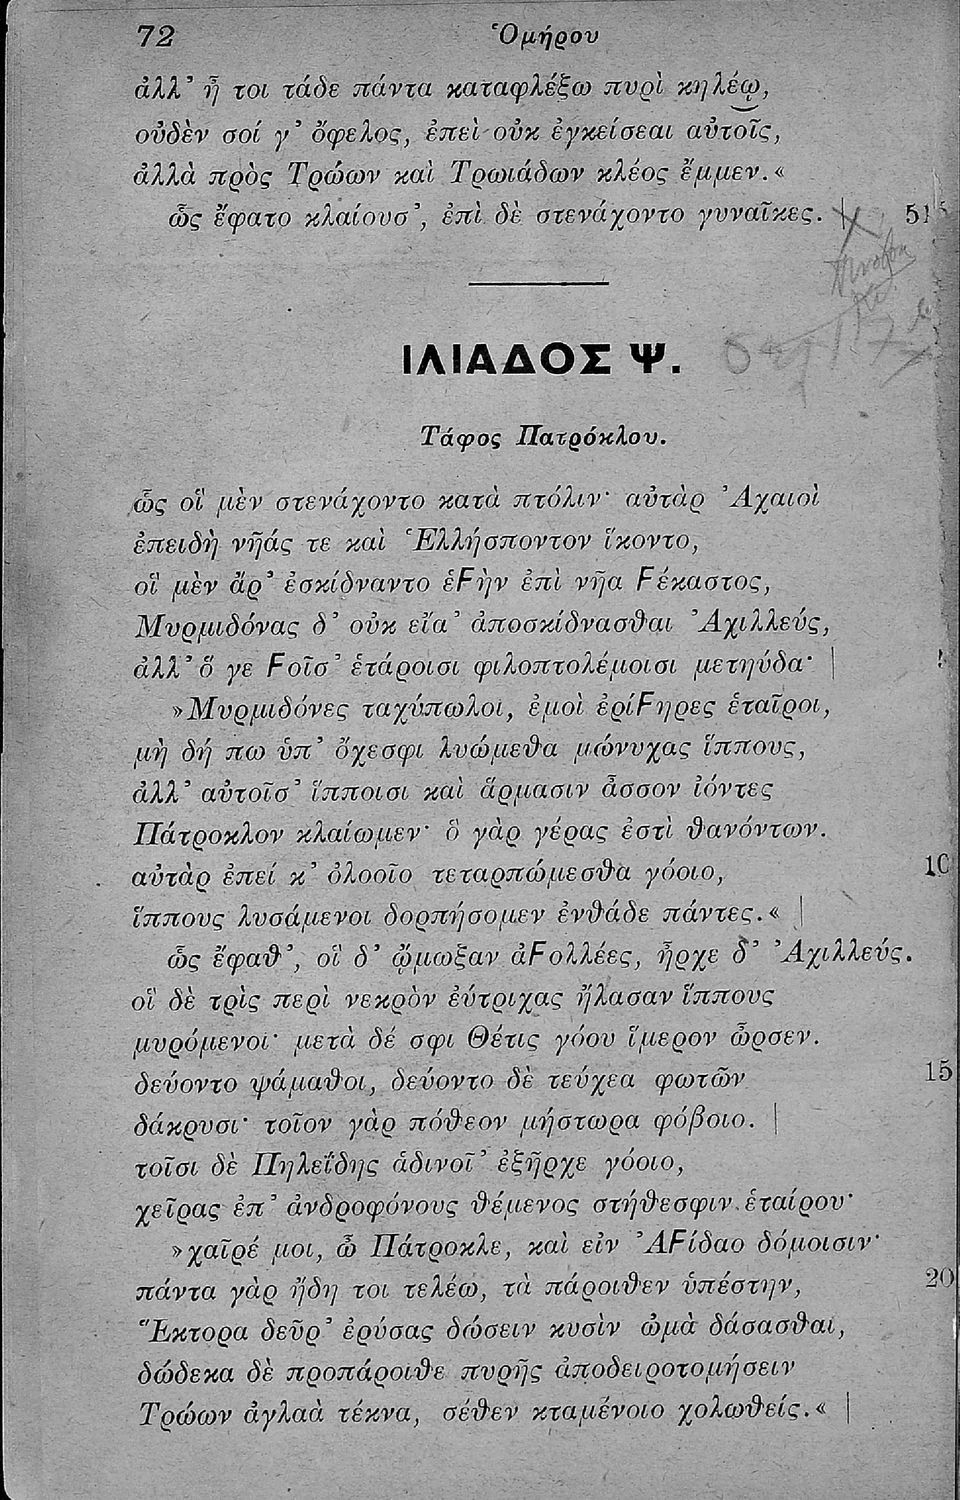 72 Ὁμήρου
ἀλλ' ἦ τοι τάδε πάντα καταφλέξω πυρὶ κηλέῳ,
οὐδὲν σοί γ' ὄφελος, ἐπεὶ οὐκ ἐγκείσεαι αὐτοῖς,
ἀλλὰ πρὸς Τρώων καὶ Τρωιάδων κλέος ἔμμεν.«
ὣς ἔφατο κλαίουσ', ἐπὶ δὲ στενάχοντο γυναῖκες. 515
ΙΛΙΑΔΟΣ Ψ.
Τάφος Πατρόκλου.
ὣς οἳ μὲν στενάχοντο κατὰ πτόλιν· αὐτὰρ Ἀχαιοὶ
ἐπειδὴ νῆάς τε καὶ Ἑλλήσποντον ἵκοντο,
οἳ μὲν ἄρ' ἐσκίδναντο ἑϜὴν ἐπὶ νῆα Ϝέκαστος,
Μυρμιδόνας δ' οὐκ εἴα' ἀποσκίδνασθαι Ἀχιλλεύς,
ἀλλ' ὅ γε Ϝοῖσ' ἑτάροισι φιλοπτολέμοισι μετηύδα·
»Μυρμιδόνες ταχύπωλοι, ἐμοὶ ἐρίϜηρες ἑταῖροι,
μὴ δή πω ὑπ' ὄχεσφι λυώμεθα μώνυχας ἵππους,
ἀλλ' αὐτοῖσ' ἵπποισι καὶ ἅρμασιν ἆσσον ἰόντες
Πάτροκλον κλαίωμεν· ὃ γὰρ γέρας ἐστὶ θανόντων.
αὐτὰρ ἐπεί κ' ὀλοοῖο τεταρπώμεσθα γόοιο, 10
ἵππους λυσάμενοι δορπήσομεν ἐνθάδε πάντες.«
ὣς ἔφαθ', οἳ δ' ᾤμωξαν ἀϜολλέες, ἦρχε δ' Ἀχιλλεύς.
οἳ δὲ τρὶς περὶ νεκρὸν ἐύτριχας ἤλασαν ἵππους
μυρόμενοι· μετὰ δέ σφι Θέτις γόου ἵμερον ὦρσεν.
δεύοντο ψάμαθοι, δεύοντο δὲ τεύχεα φωτῶν 15
δάκρυσι· τοῖον γὰρ πόθεον μήστωρα φόβοιο.
τοῖσι δὲ Πηλεΐδης ἁδινοῖ' ἐξῆρχε γόοιο,
χεῖρας ἐπ' ἀνδροφόνους θέμενος στήθεσφιν ἑταίρου·
»χαῖρέ μοι, ὦ Πάτροκλε, καὶ εἰν ἈϜίδαο δόμοισιν·
πάντα γὰρ ἤδη τοι τελέω, τὰ πάροιθεν ὑπέστην, 20
Ἕκτορα δεῦρ' ἐρύσας δώσειν κυσὶν ὠμὰ δάσασθαι,
δώδεκα δὲ προπάροιθε πυρῆς ἀποδειροτομήσειν
Τρώων ἀγλαὰ τέκνα, σέθεν κταμένοιο χολωθείς.«